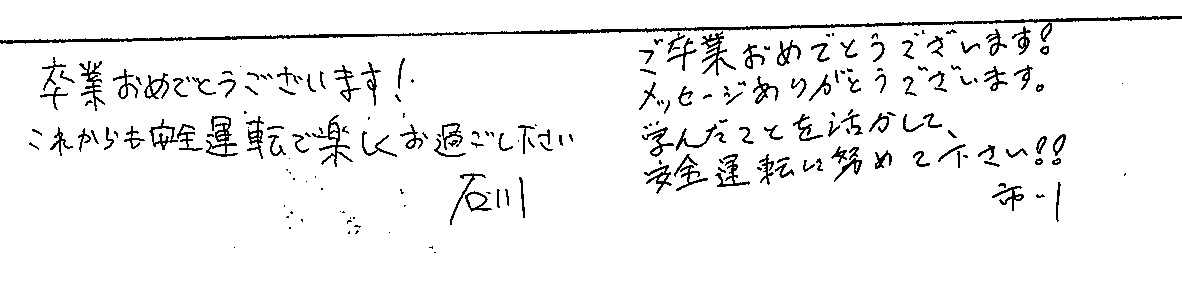 卒業おめでとうございます!
これからも安全運転で楽しくお過ごし下さい
石川
ご卒業おめでとうございます!
メッセージありがとうございます。
学んだことを活かして、
安全運転に努めて下さい!!
市川